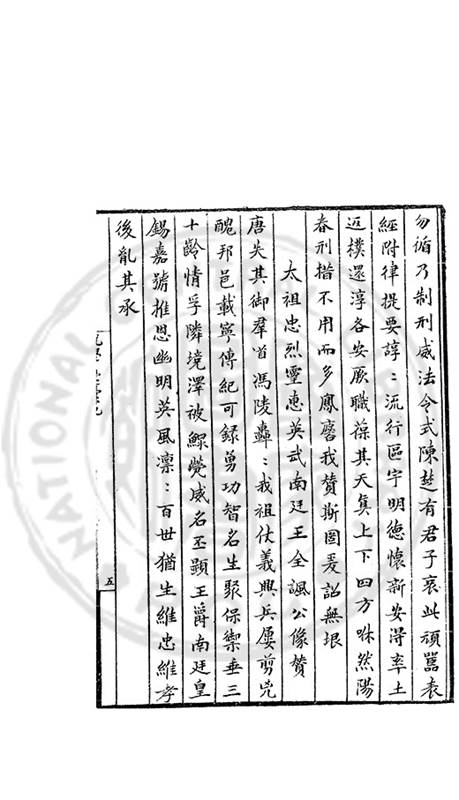 勿循乃制刑威法令式陳越有君子哀此頑嚚表
經附律提要諄〻流行區宇明德懷新安得率土
返樸還淳各安厥職葆其天真上下四方咻然陽
春刑措不用而多鳳麐我贊斯圖爰詔無垠
太祖忠烈靈惠英武南廷王全諷公像贊
唐失其御群酋馮陵轟〻我祖仗義興兵屢剪兇
醜邦邑載寧傳紀可録勇功智名生聚保禦垂三
十齡情孚隣境澤被鰥㷀威名丕顯王爵南廷皇
錫嘉號推恩幽明英風凛〻百世猶生維忠維孝
後胤其承
五
NATIONAL